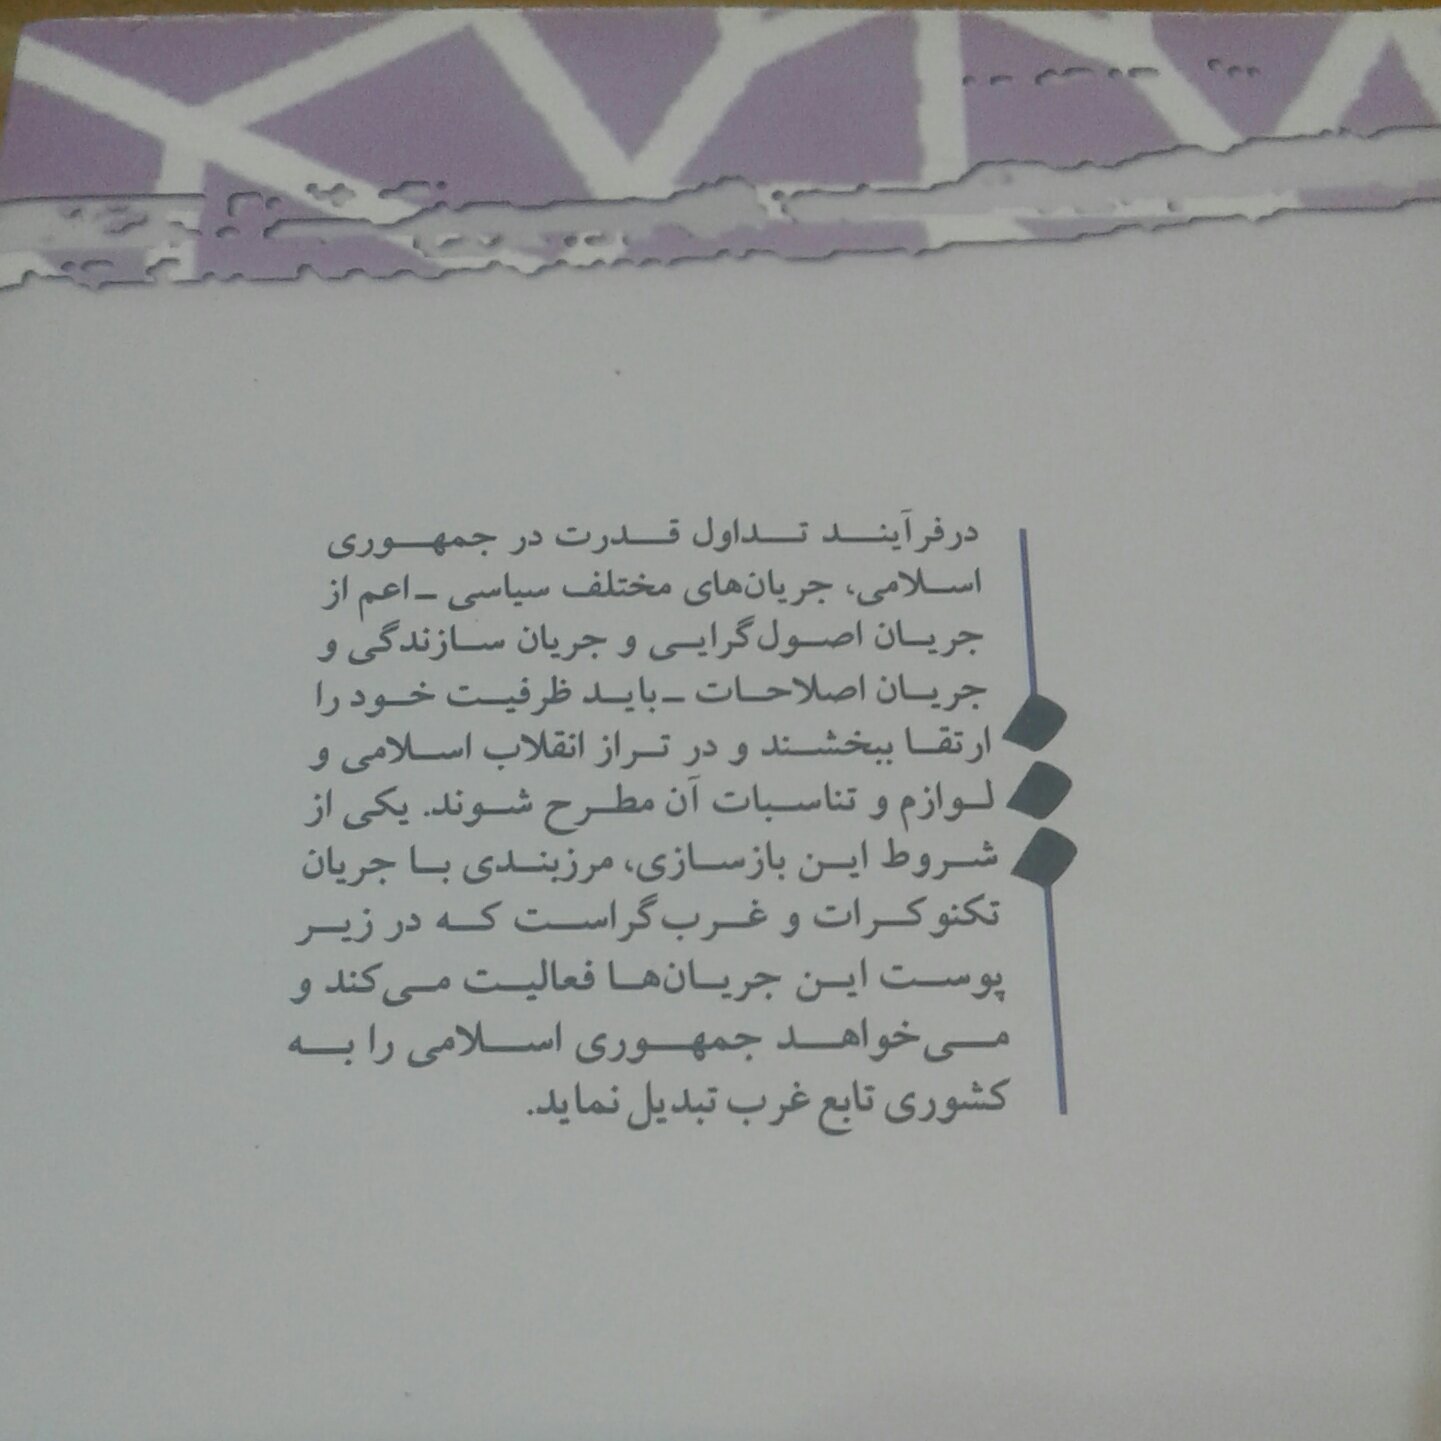 درفرآیند تداول قدرت در جمهوری
اسلامی، جریان‌های مختلف سیاسی ـ اعم از
جریان اصول‌گرایی و جریان سازندگی و
جریان اصلاحات ـ باید ظرفیت خود را
ارتقا ببخشند و در تراز انقلاب اسلامی و
لوازم و تناسبات آن مطرح شوند. یکی از
شروط این بازسازی، مرزبندی با جریان
تکنوکرات و غرب‌گراست که در زیر
پوست این جریان‌ها فعالیت می‌کند و
می‌خواهد جمهوری اسلامی را به
کشوری تابع غرب تبدیل نماید.